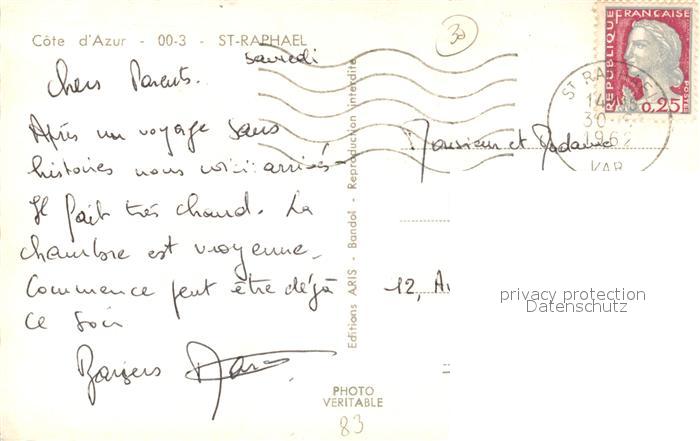 Côte d'Azur - 00-3 - ST-RAPHAEL
samedi
30
Chers Parents.
Après un voyage sans
histoires nous voici arrivés -
Il fait très chaud. La
chambre est moyenne.
Commence peut être déjà
ce soir
Baisers
Editions ARIS - Bandol - Reproduction interdite
PHOTO
VERITABLE
83
REPUBLIQUE FRANÇAISE
POSTES
0,25
ST RAPHAEL
14
30
1962
VAR
Monsieur et Madame
12, Av
privacy protection
Datenschutz